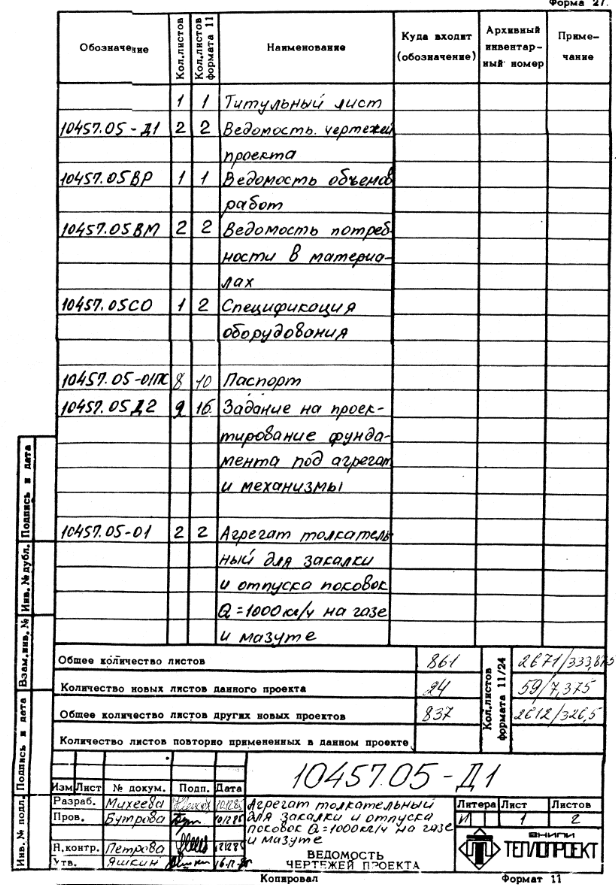 Форма 27.
Обозначение Кол.листов Кол.листов формата 11 Наименование Куда входит (обозначение) Архивный инвентарный номер Примечание
1 1 Титульный лист
10457.05-Д1 2 2 Ведомость чертежей
проекта
10457.05ВР 1 1 Ведомость объемов
работ
10457.05ВМ 2 2 Ведомость потреб-
ности в материа-
лах
10457.05СО 1 2 Спецификация
оборудования
10457.05-01ПС 8 10 Паспорт
10457.05Д2 9 16 Задание на проек-
тирование фунда-
мента под агрегат
и механизмы
10457.05-01 2 2 Агрегат толкатель
ный для закалки
и отпуска поковок
Q=1000кг/ч на газе
и мазуте
Общее количество листов 861 Кол.листов формата 11/24 2671/333,875
Количество новых листов данного проекта 24 59/7,375
Общее количество листов других новых проектов 837 2612/326,5
Количество листов повторно примененных в данном проекте
10457.05-Д1
Изм Лист № докум. Подп. Дата
Разраб. Михеева
Пров. Бутрова
Н.контр. Петрова
Утв. Яшкин
Агрегат толкательный
для закалки и отпуска
поковок Q=1000кг/ч на газе
и мазуте
ВЕДОМОСТЬ
ЧЕРТЕЖЕЙ ПРОЕКТА
Литера Лист Листов
И 1 2
ВНИПИ
ТЕПЛОПРОЕКТ
Инв. № подл. Подпись и дата Взам.инв. № Инв. № дубл. Подпись и дата
Копировал Формат 11